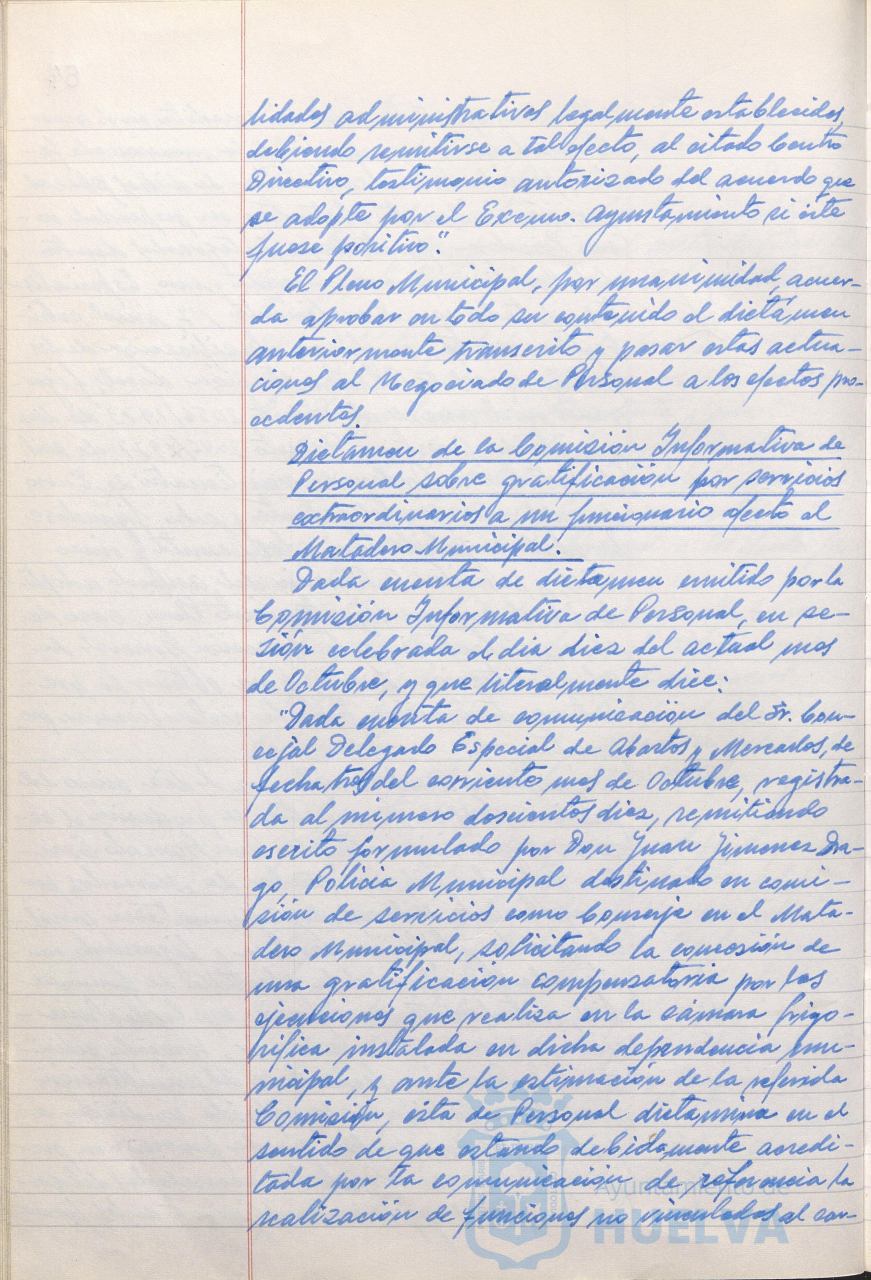 lidades administrativas legalmente establecidas,
debiendo remitirse a tal efecto, al citado Centro
Directivo, testimonio autorizado del acuerdo que
se adopte por el Excmo. Ayuntamiento si éste
fuese positivo".
El Pleno Municipal, por unanimidad, acuer-
da aprobar en todo su contenido el dictámen
anteriormente transcrito y pasar estas actua-
ciones al Negociado de Personal a los efectos pro-
cedentes.
Dictámen de la Comisión Informativa de
Personal sobre gratificación por servicios
extraordinarios a un funcionario afecto al
Matadero Municipal.
Dada cuenta de dictamen emitido por la
Comisión Informativa de Personal, en se-
sión celebrada el dia diez del actual mes
de Octubre, y que literalmente dice:
"Dada cuenta de comunicación del Sr. Con-
cejal Delegado Especial de Abastos y Mercados, de
fecha tres del corriente mes de Octubre, registra-
da al número doscientos diez, remitiendo
escrito formulado por Don Juan Jimenez Dra-
go, Policia Municipal destinado en comi-
sión de servicios como Conserje en el Mata-
dero Municipal, solicitando la concesión de
una gratificación compensatoria por las
ejecuciones que realiza en la cámara frigo-
rifica instalada en dicha dependencia mu-
nicipal, y ante la estimación de la referida
Comisión, ésta de Personal dictamina en el
sentido de que estando debidamente acredi-
tada por la comunicación de referencia la
realización de funciones no vinculadas al car-
Ayuntamiento de
HUELVA